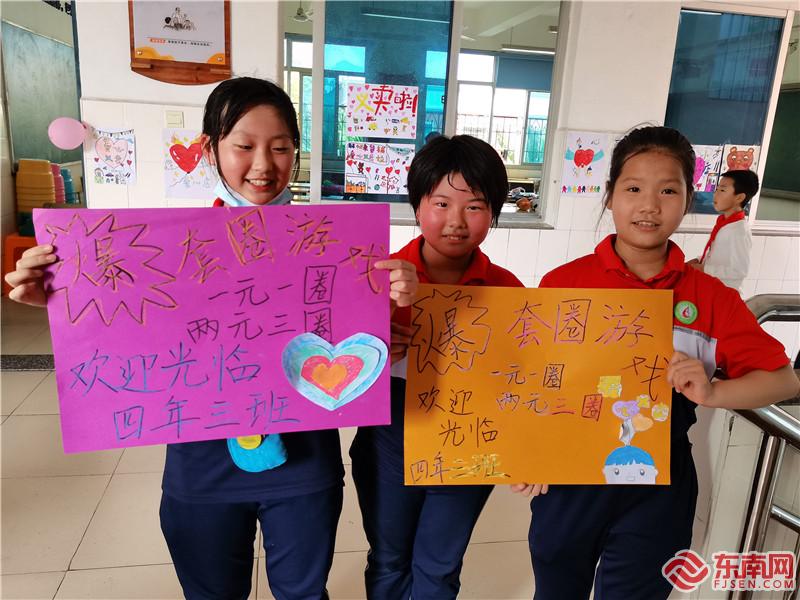 义卖啦!
爆 套圈游戏
一元一圈
两元三圈
欢迎光临
四年三班
爆 套圈游戏
一元一圈
两元三圈
欢迎
光临
四年三班
东南网
FJSEN.COM